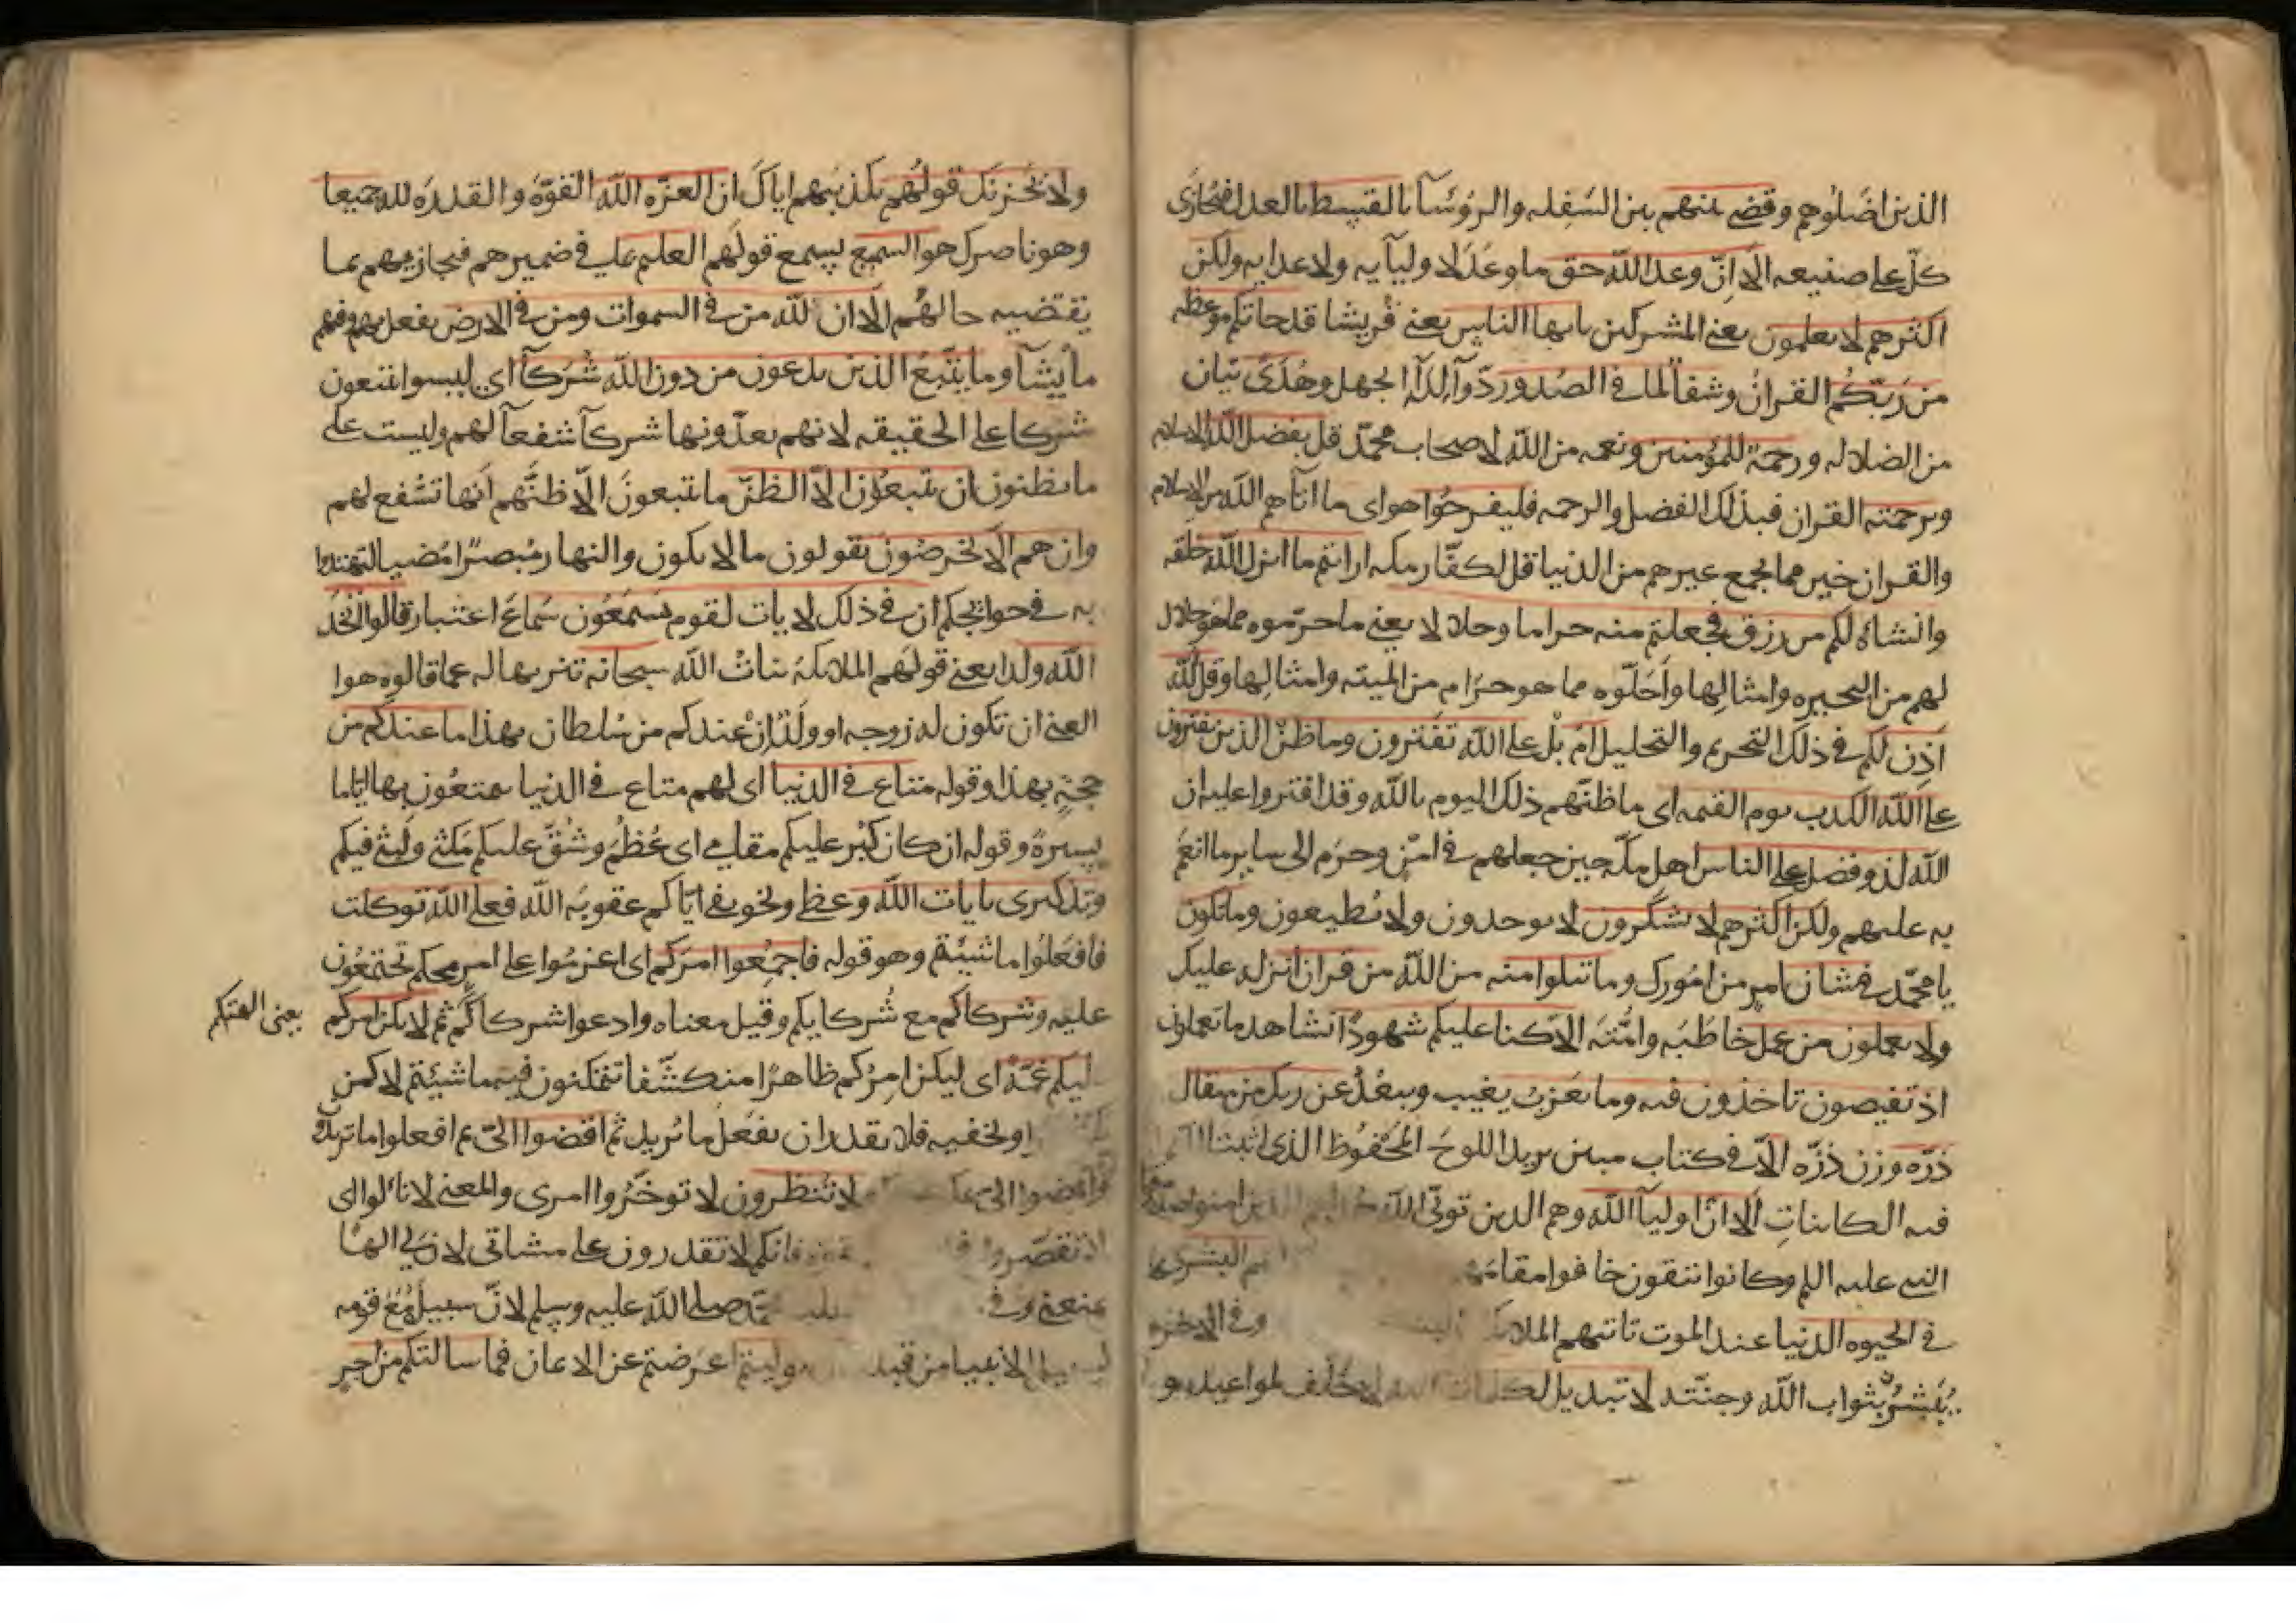 الذين اضلوهم وقضى بينهم بين السفله والرؤسآ بالقسط بالعدل فيجازى
كلّ على صنيعه الا انّ وعد الله حق ما وعد لاوليآيه ولاعدايه ولكن
اكثرهم لا يعلمون يعنى المشركين يايها الناس يعنى قريشا قد جاتكم موعظه
من ربّكم القران وشفآ لما فى الصدور دوآ لدآ الجهل وهدى بيان
من الضلاله ورحمة للمؤمنين ونعمه من الله لاصحاب محمّد قل بفضل الله الاسلام
وبرحمته القران فبذلك الفضل والرحمه فليفرحوا هو اى ما اتاهم الله من الاسلام
والقران خير مما يجمع غيرهم من الدنيا قل لكفّار مكه ارايتم ما انزل الله خلقه
وانشاه لكم من رزق فجعلتم منه حراما وحلالا يعنى ما حرّموه مما هو حلال
لهم من البحيره وامثالها واحلّوه مما هو حرام من الميته وامثالها وقل الله
اذن لكم فى ذلك التحريم والتحليل ام بل على الله تفترون وما ظنّ الذين يفترون
على الله الكذب يوم القيمه اى ما ظنّهم ذلك اليوم بالله وقد افتروا عليه ان
الله لذو فضل على الناس اهل مكّه حين جعلهم فى امن وحرم الى ساير ما انعم
به عليهم ولكن اكثرهم لا يشكرون لا يوحدون ولا يطيعون وما تكون
يا محمّد فى شان امر من امورك وما تتلوا منه من الله من قران انزله عليك
ولا يعملون من عمل خاطبه وامّته الا كنا عليكم شهودا نشاهد ما تعملون
اذ تفيضون تاخذون فيه وما يعزب يغيب ويبعد عن ربك من مثقال
ذرّه وزن ذرّه الا فى كتاب مبين يريد اللوح المحفوظ الذى اثبت
فيه الكاينات الا انّ اوليآ الله وهم الذين تولّى الله الذين امنوا صدّقوا
النبى عليه السلم وكانوا يتقون خافوا مقامهم لهم البشرى
فى الحيوه الدنيا عند الموت تاتيهم الملايكه وفى الاخره
يبشّر بثواب الله وجنّته لا تبديل لكلمات الله لا خلف لمواعيده
ولا يحزنك قولهم تكذيبهم اياك ان العزّه لله القوّه والقدره لله جميعا
وهو ناصرك هو السميع يسمع قولهم العليم على فى ضميرهم فيجازيهم بما
يقتضيه حالهم الا ان لله من فى السموات ومن فى الارض يفعل بهم وفيهم
ما يشآ وما يتّبع الذين يدعون من دون الله شركآ اى ليسوا يتبعون
شركا على الحقيقه لانهم يعدّونها شركآ شفعآ لهم وليست على
ما يظنون ان يتبعون الا الظنّ ما يتبعون الا ظنّهم انها تشفع لهم
وان هم الا يخرصون يقولون ما لا يكون والنهار مبصرا مضيا لتهتدوا
به فى حوائجكم ان فى ذلك لايات لقوم يسمعون سماع اعتبار قالوا اتّخذ
الله ولدا يعنى قولهم الملايكة بنات الله سبحانه تنزيها له عما قالوه هوا
الغنى ان تكون له زوجه او ولد ان عندكم من سلطان بهذا ما عندكم من
حجة بهذا وقوله متاع فى الدنيا اى لهم متاع فى الدنيا يمتعون بها اياما
يسيرة وقوله ان كان كبر عليكم مقامى اى عظم وشقّ عليكم مكثى ولبثى فيكم
وتذكيرى بايات الله وعظى وتخويفى اياكم عقوبة الله فعلى الله توكلت
فافعلوا ما شيئتم وهو قوله فاجمعوا امركم اى اعزموا على امر محكم تجتمعون
عليه وشركاكم مع شركايكم وقيل معناه وادعوا شركاكم ثم لا يكن امركم
يعنى الهتكم
عليكم غمّة اى ليكن امركم ظاهرا منكشفا تتمكنون فيه ما شيئتم لا كمن
او يخفيه فلا يقدر ان يفعل ما يريد ثم اقضوا الىّ ثم افعلوا ما تريدون
وامضوا الىّ لا تنظرون لا توخّروا امرى والمعنى لا تالوا اى
لا تقصّروا فانكم لا تقدرون على مشاقى لان لى الها
يمنعنى وفى محمّد صلى الله عليه وسلم لان سبيله مع قومه
الانبيا من قبله توليتم اعرضتم عن الايمان فما سالتكم من اجر